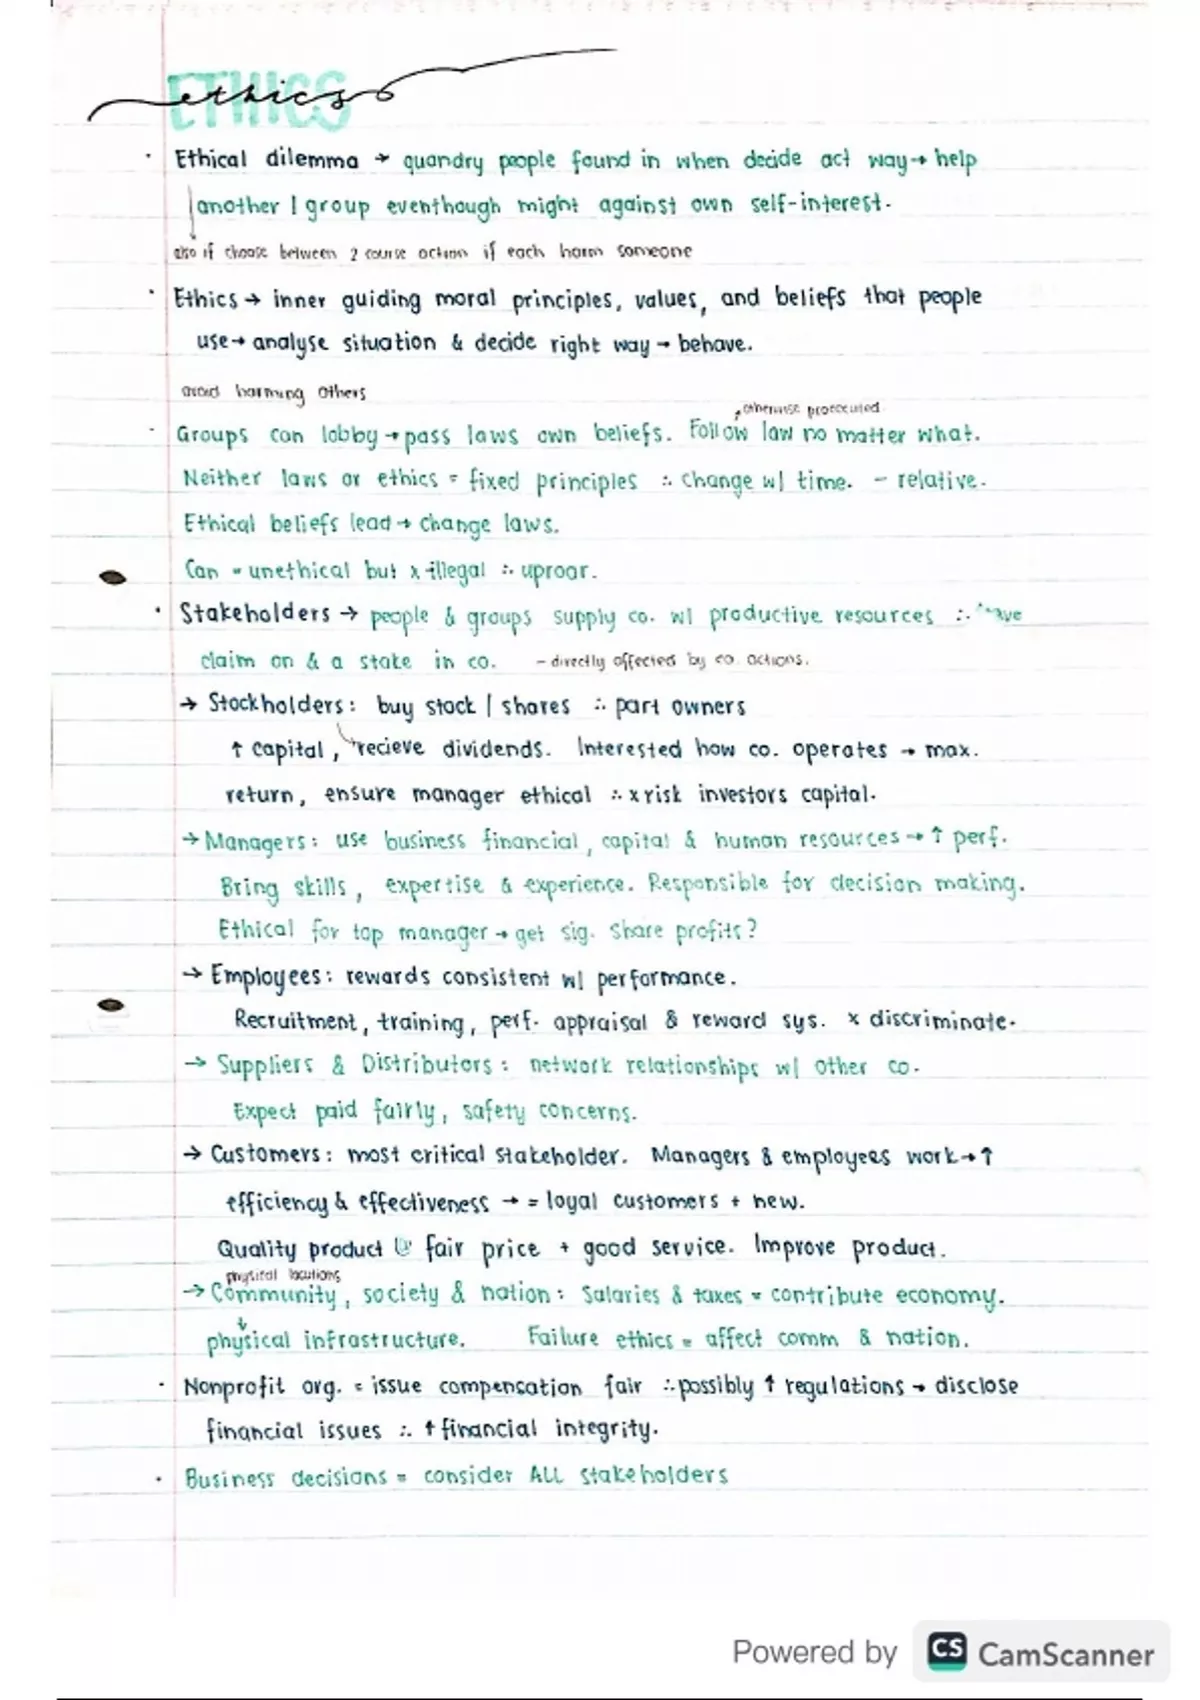 ETHICS
ethics
· Ethical dilemma → quandry people found in when decide act way → help
another / group eventhough might against own self-interest.
also if choose between 2 course action if each harm someone
· Ethics → inner guiding moral principles, values, and beliefs that people
use → analyse situation & decide right way → behave.
avoid harming others
otherwise prosecuted
· Groups can lobby → pass laws own beliefs. Follow law no matter what.
Neither laws or ethics = fixed principles ∴ change w/ time. - relative.
Ethical beliefs lead → change laws.
Can = unethical but x illegal ∴ uproar.
· Stakeholders → people & groups supply co. w/ productive resources ∴
claim on & a stake in co. - directly affected by co. actions.
→ Stockholders: buy stock / shares ∴ part owners
↑ capital, recieve dividends. Interested how co. operates → max.
return, ensure manager ethical ∴ x risk investors capital.
→ Managers: use business financial, capital & human resources → ↑ perf.
Bring skills, expertise & experience. Responsible for decision making.
Ethical for top manager → get sig. share profits?
→ Employees: rewards consistent w/ performance.
Recruitment, training, perf. appraisal & reward sys. x discriminate.
→ Suppliers & Distributors: network relationships w/ other co.
Expect paid fairly, safety concerns.
→ Customers: most critical stakeholder. Managers & employees work → ↑
efficiency & effectiveness → = loyal customers + new.
Quality product @ fair price + good service. Improve product.
physical locations
→ Community, society & nation: Salaries & taxes = contribute economy.
physical infrastructure. Failure ethics = affect comm & nation.
· Nonprofit org. = issue compensation fair ∴ possibly ↑ regulations → disclose
financial issues ∴ ↑ financial integrity.
· Business decisions = consider ALL stakeholders
Powered by CS CamScanner